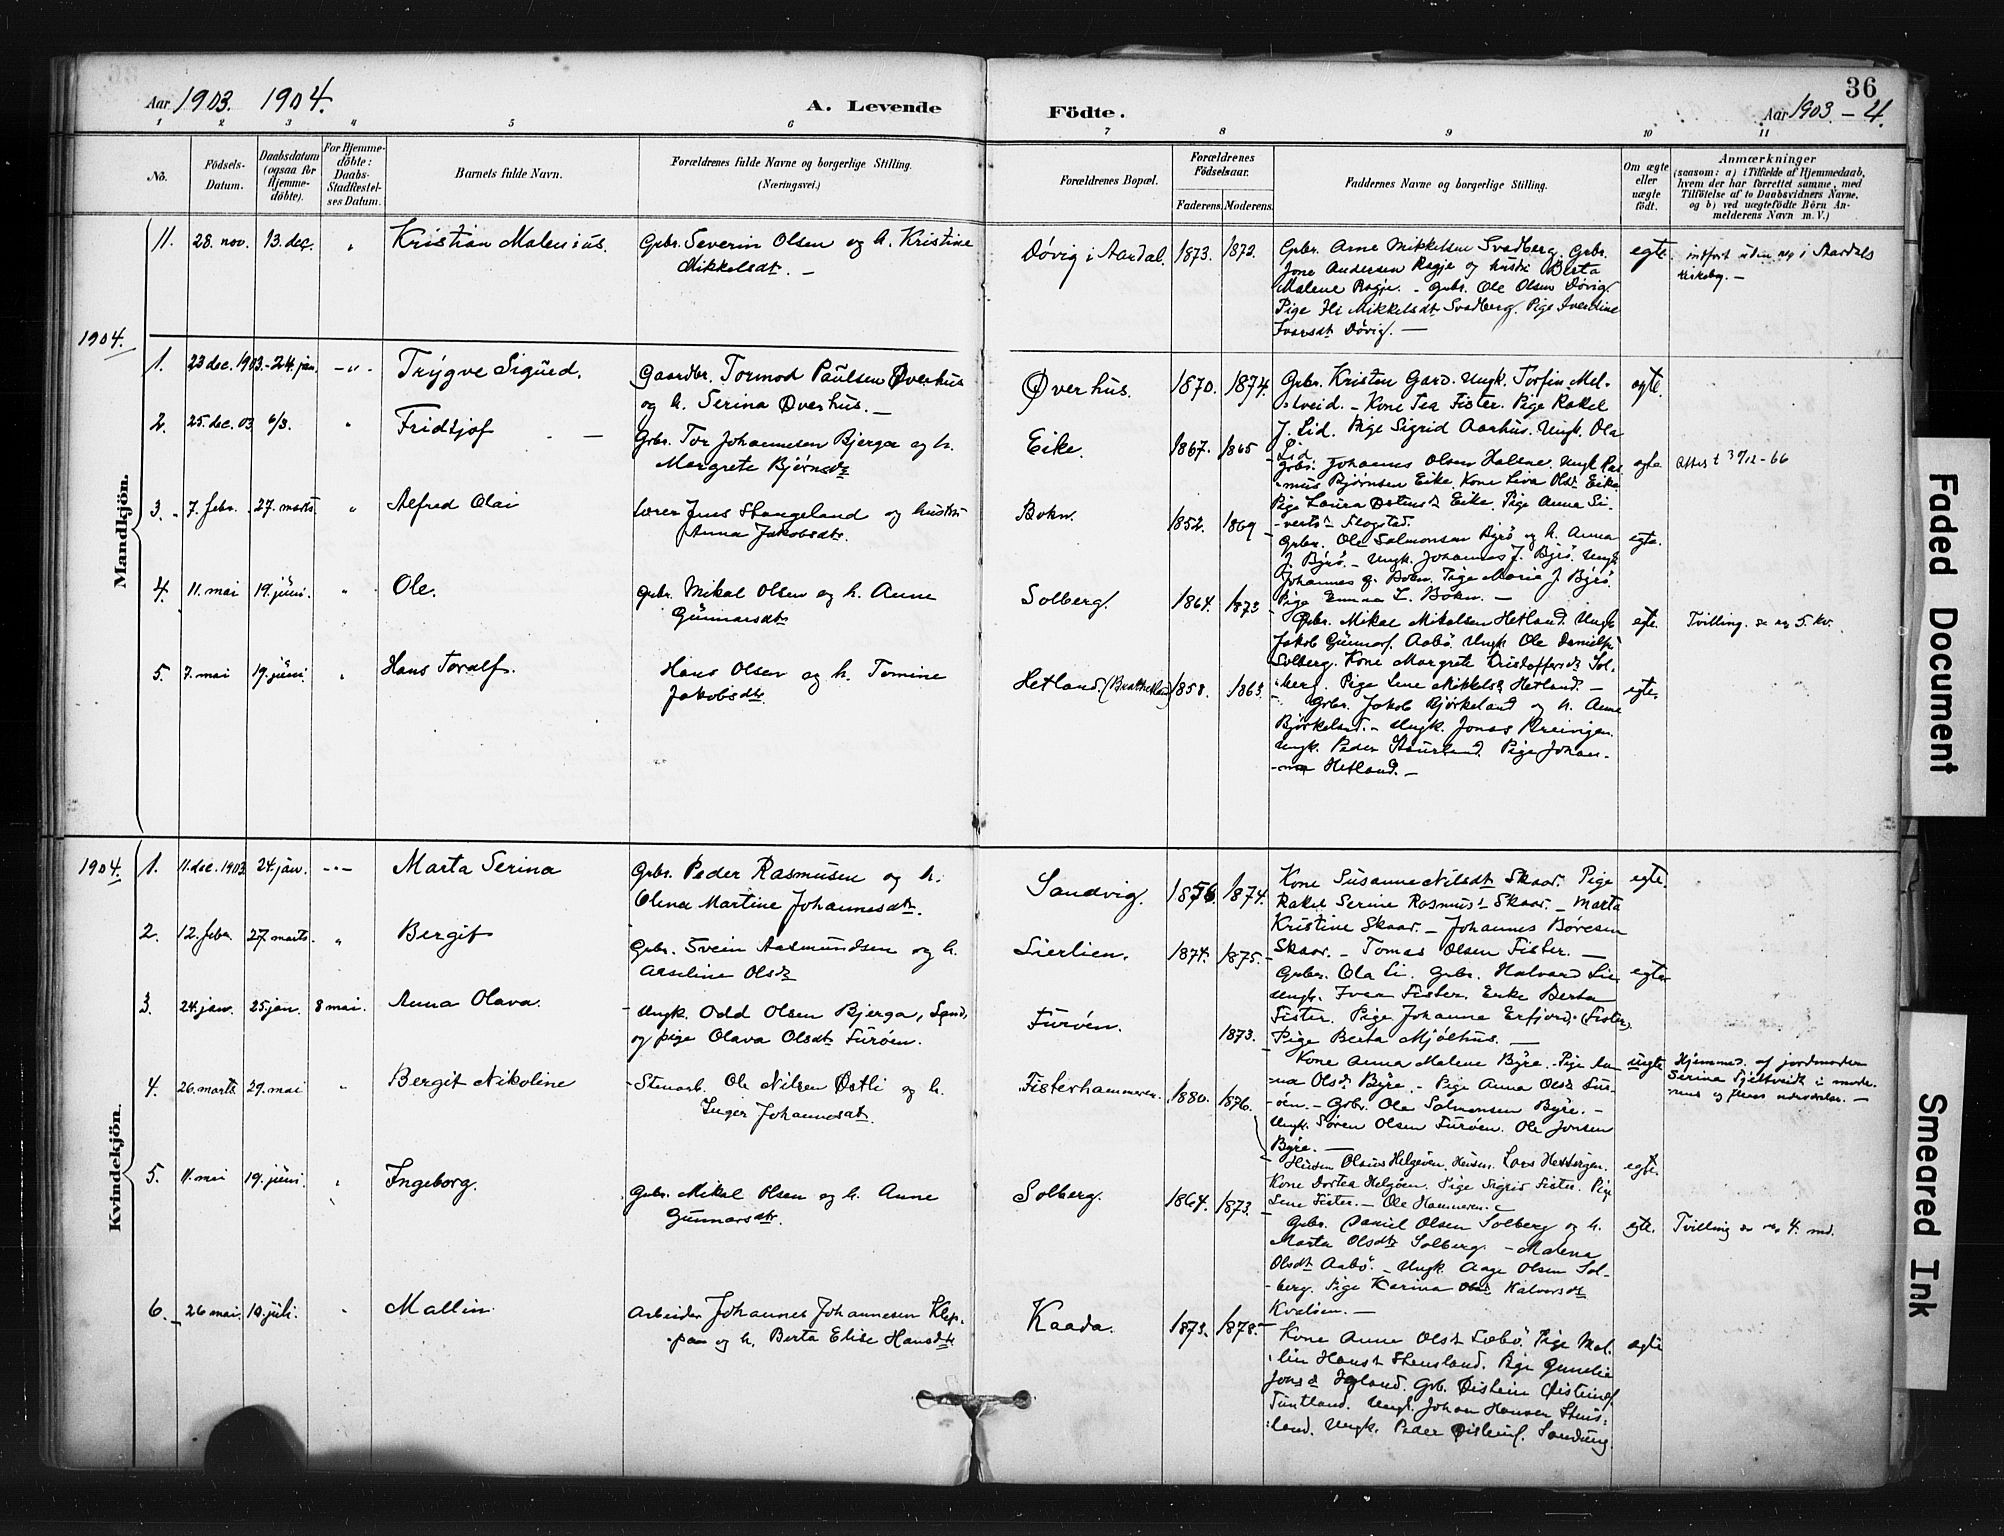 36
Aar 1903. 1904.
A. Levende Födte.
Aar 1903 - 4.
1 2 3 4 5 6 7 8 9 10 11
No.
Födsels-
Datum.
Daabsdatum
(ogsaa for
Hjemme-
döbte).
For Hjemme-
döbte:
Daabs-
Stadfæstel-
ses Datum.
Barnets fulde Navn.
Forældrenes fulde Navne og borgerlige Stilling.
(Næringsvei.)
Forældrenes Bopæl.
Forældrenes
Födselsaar.
Faderens. Moderens.
Faddernes Navne og borgerlige Stilling.
Om ægte
eller
uægte
födt.
Anmærkninger
(saasom: a) i Tilfælde af Hjemmedaab,
hvem der har forrettet samme, med
Tilföielse af to Daabsvidners Navne,
og b) ved uægtefödte Börn An-
melderens Navn m. V.)
Mandkjön.
11. 28. nov. 13. dec. " Kristian Malenius. Gbr. Severin Olsen og h. Kristine
Mikkelsdt. —
Døvig i Aardal. 1873. 1872.
Gbr. Arne Mikkelsen Svadberg. Gbr.
Jone Andersen Ragje og hustru Berta
Malene Ragje. - Gbr. Ole Olsen Døvig.
Pige Mikkelsdt Svadberg. Pige
Ivarsdt Døvig. —
egte. indført uden no i Aardals
kirkebog. —
1904.
1. 23 dec. 1903. - 24. jan. - " - Trygve Sigurd. Gaardbr. Tormod Paulsen Øverhus
og h. Serina Øverhus. —
Øverhus. 1870. 1874.
Gbr. Kristen Gard. Ungk. Torfin Mel-
-stveid. - Kone Tea Fister. Pige Rakel
J. Lid. Pige Sigrid Aarhus. Ungk. Ola
Lid.
egte.
2. 25. dec. 03 6/3. " Fridtjof — Gbr. Tor Johannesen Bjerga og h.
Margrete Bjørnsdt
Eike. 1867. 1865
Gbr. Johannes Olsen Halsne. Ungk Ras-
mus Bjørnsen Eike. Kone Liva Olsdt Eike
Pige Laura Østensdt Eike. Pige Anna Si-
-vertsdt
egte. Attest
3. 7. febr. 27. marts. " Alfred Olai Lærer Jens Stangeland og hustru
Anna Jakobsdtr.
Bokn. 1852. 1869
Gbr. Ole Salmonsen Byrø og h. Anna
J. Byrø. - Ungk. Johannes J. Byrø. Ungk
Johannes G. Bokn. Pige Marie J. Byrø.
Pige Emma L. Bokn. —
egte.
4. 11. mai 19. juni. " Ole. Gbr. Mikal Olsen og h. Anne
Gunnarsdtr
Solberg. 1864. 1873
Gbr. Mikal Mikalsen Hetland. Ungk
Jakob Gunnars. Aabø. Ungk Ole Danielsen
Solberg. Kone Margrete Kristoffersdt Sol-
-berg. Pige Lene Mikkelsdt Hetland. —
egte. Tvilling. se no 5. kv.
5. 7. mai 19. juni. " Hans Toralf. Hans Olsen og h. Tomine
Jakobsdtr.
Hetland. 1858. 1863.
Gbr. Jakob Bjørkeland og h. Anne
Bjørkeland. - Ungk. Jonas
Ungk. Peder Pige Johan-
-na Hetland. —
egte.
Kvindekjön.
1904.
1. 11. dec. 1903. 24. jan. - " - Marta Serina Gbr. Peder Rasmusen og h.
Olena Martine Johannesdtr.
Sandvig. 1856. 1874.
Kone Susanne Nilsdt Skaar. Pige
Rakel Serine Rasmusdt Skaar. - Marta
Kristine Skaar. - Johannes Børesen
Skaar. - Tomas Olsen Fister. —
egte.
2. 12. febr 27. marts. " Bergit Gbr. Svein Aasmundsen og h.
Aaseline Olsdt
Lierlien. 1874. 1875.
Gbr. Ola Li. Gbr. Halvard Lie
Ungk. Ivar Fister. Enke Berta
Fister. Pige Johanne Erfjord. (Fister).
Pige Berta Mjølhus. —
egte
3. 24. jan. 25. jan. 8 mai. Anna Olava. Ungk. Odd Olsen Bjerga, Sand,
og pige Olava Olsdt Furøen.
Furøen. 1873.
Kone Anna Malene Byre. Pige An-
na Olsdt Byre. - Pige Anna Olsdt Fur-
-øen. - Gbr. Ole Salmonsen Byre. -
Ungk. Søren Olsen Furøen. Ole Jonsen
Byre. —
uegte Hjemmed. af jordmoder
Serina Fjeltveidt i mode-
rens og fleres nærværelse. —
4. 26. marts. 29. mai " Bergit Nikoline Stenarb. Ole Nilsen Østli og h.
Inger Johannesdt.
Fisterhammeren. 1880. 1876.
Husm Olaus Helgøen. Husm. Lars
Kone Dortea Helgøen. Pige Sigrid Fister. Pige
Lene Fister. - Ole Hammeren. -
egte.
5. 11. mai 19. juni. " Ingeborg. Gbr. Mikal Olsen og h. Anne
Gunnarsdtr.
Solberg. 1864. 1873.
Gbr. Daniel Olsen Solberg og h.
Marta Olsdtr Solberg. - Malena
Olsdt Aabø. - Ungk Aage Olsen Sol-
-berg. Pige Karina Halvorsdt
Kvaløen. —
egte. Tvilling se no 4. md.
6. 26 mai. 10. juli. " Mallin Arbeider Johannes Johannesen Klep-
-pa og h. Berta Elise Hansdtr.
Kaada. 1873. 1878.
Kone Anne Olsdt Lobø. Pige Mal-
-lin Hansdt Stensland. Pige Gunelie
Jonsdt Gbr. Øistein Øisteins.
Tuntland. Ungk. Johan Hansen Stens-
-land. Ungk. Peder Øisteins.
egte
Faded Document
Smeared Ink